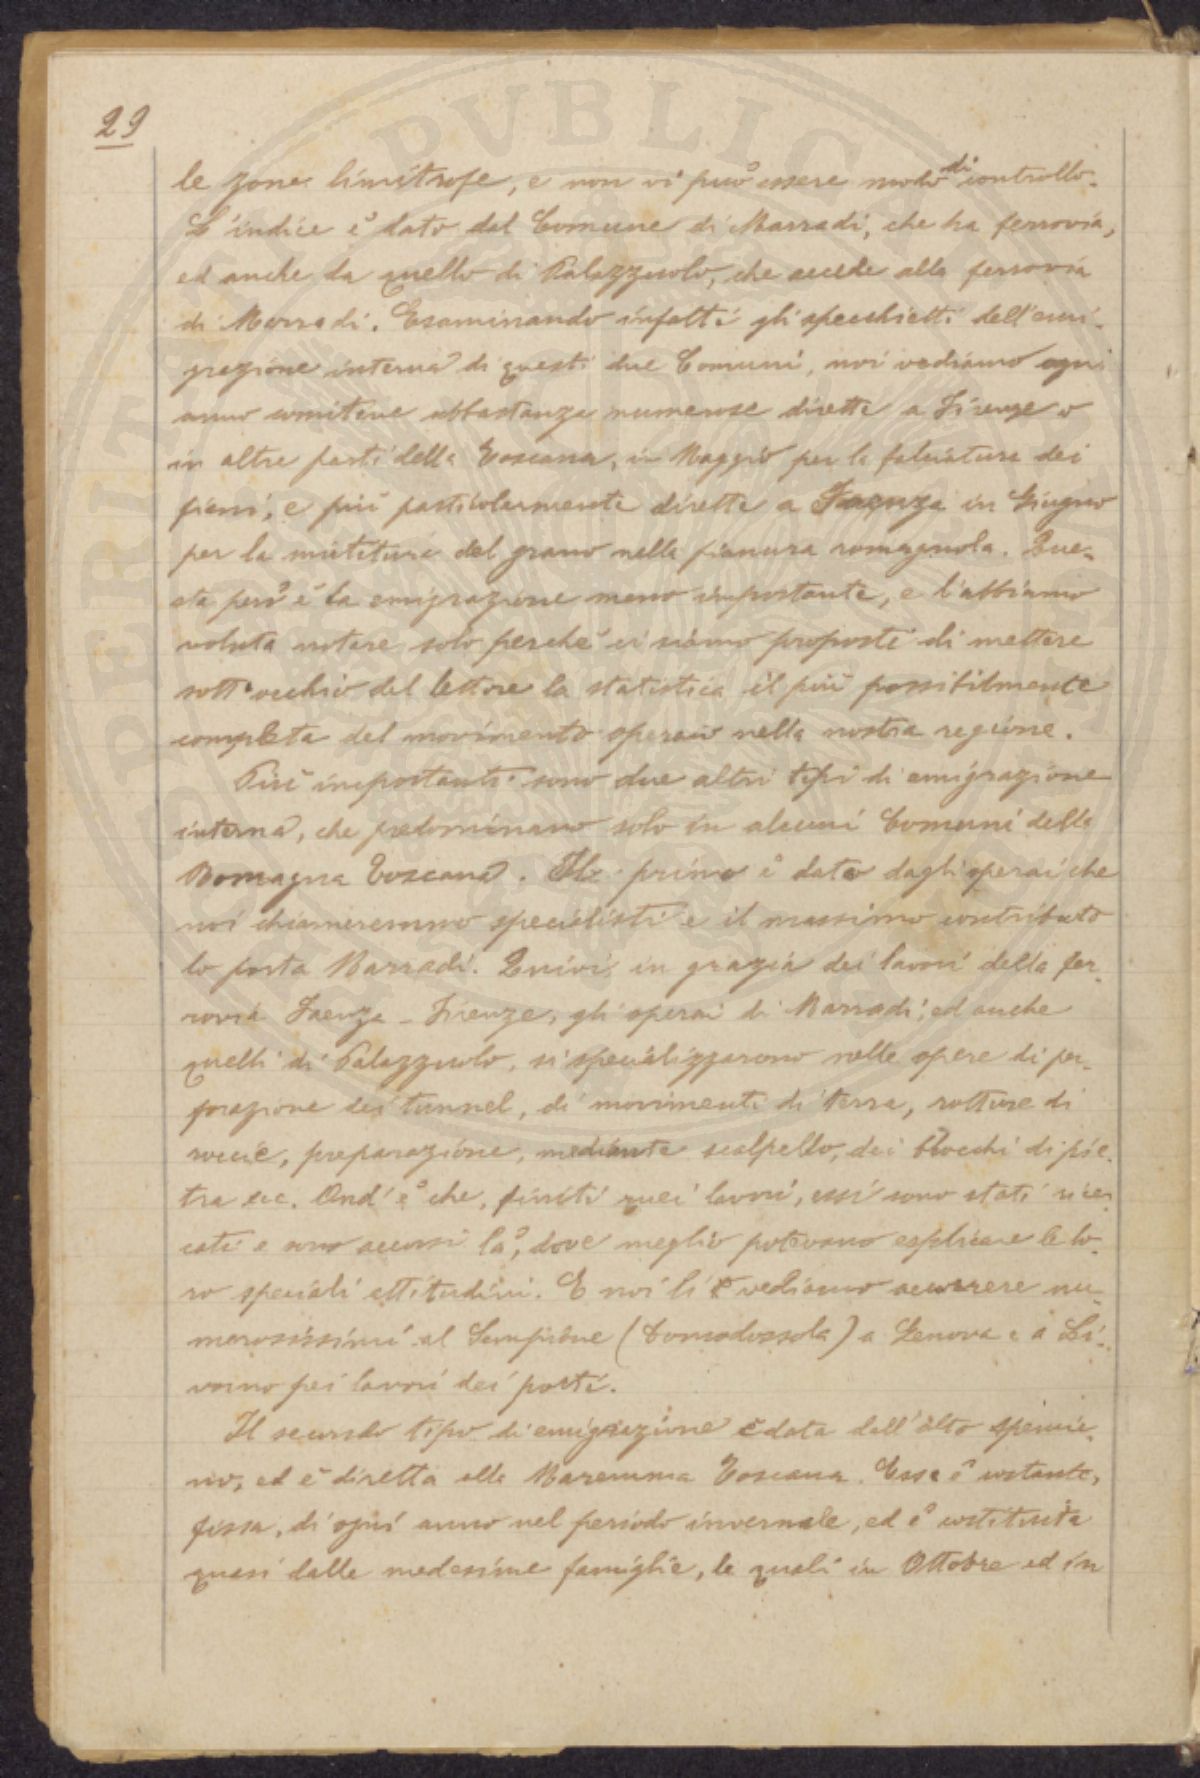 29
le zone limitrofe, e non vi può essere modo di controllo.
L'indice è dato dal Comune di Marradi, che ha ferrovia,
ed anche da quello di Palazzuolo, che accede alla ferrovia
di Marradi. Esaminando infatti gli specchietti dell'emi-
grazione interna di questi due Comuni, noi vediamo ogni
anno comitive abbastanza numerose dirette a Firenze o
in altre parti della Toscana, in Maggio per la falciatura dei
fieni, e più particolarmente dirette a Faenza in Giugno
per la mietitura del grano nella pianura romagnola. Que-
sta però è la emigrazione meno importante, e l'abbiamo
voluta notare solo perchè ci siamo proposti di mettere
sott'occhio del lettore la statistica il più possibilmente
completa del movimento operaio nella nostra regione.
Più importanti sono due altri tipi di emigrazione
interna, che predominano solo in alcuni Comuni della
Romagna Toscana. Il primo è dato dagli operai che
noi chiameremmo specialisti e il massimo contributo
lo porta Marradi. Quivi in grazia dei lavori della fer-
rovia Faenza - Firenze, gli operai di Marradi, ed anche
quelli di Palazzuolo, si specializzarono nelle opere di per-
forazione dei tunnel, di movimenti di terra, rotture di
roccie, preparazione, mediante scalpello, dei blocchi di pie-
tra ecc. Ond'è che, finiti quei lavori, essi sono stati ricer-
cati e sono accorsi là, dove meglio potevano esplicare le lo-
ro speciali attitudini. E noi li vediamo accorrere nu-
merosissimi al Sempione (Domodossola) a Genova e a Li-
vorno pei lavori dei porti.
Il secondo tipo di emigrazione è data dall'alto Apenni-
no, ed è diretta alla Maremma Toscana. Essa è costante,
fissa, di ogni anno nel periodo invernale, ed è costituita
quasi dalle medesime famiglie, le quali in Ottobre ed in